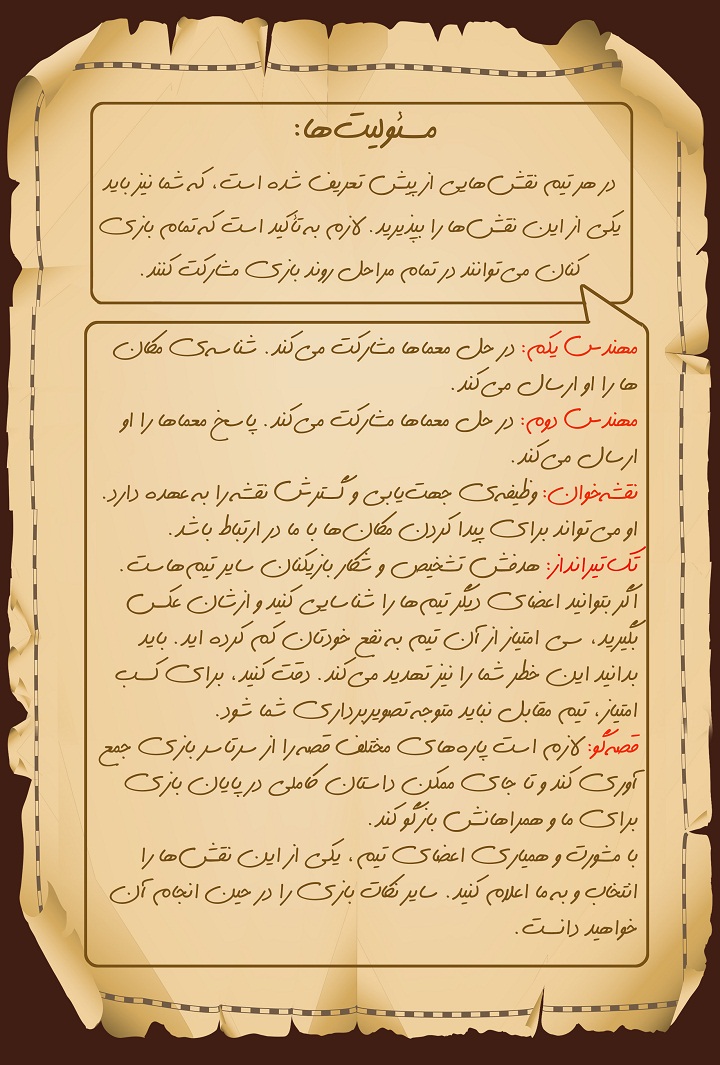 مسئولیت‌ها:
در هر تیم نقش‌هایی از پیش تعریف شده است، که شما نیز باید
یکی از این نقش‌ها را بپذیرید. لازم به تأکید است که تمام بازی
کنان می‌توانند در تمام مراحل روند بازی مشارکت کنند.
مهندس یکم: در حل معماها مشارکت می‌کند. شناسه‌ی مکان
ها را او ارسال می‌کند.
مهندس دوم: در حل معماها مشارکت می‌کند. پاسخ معماها را او
ارسال می‌کند.
نقشه‌خوان: وظیفه‌ی جهت‌یابی و گسترش نقشه را به عهده دارد.
او می‌تواند برای پیدا کردن مکان‌ها با ما در ارتباط باشد.
تک‌تیرانداز: هدفش تشخیص و شکار بازیکنان سایر تیم‌هاست.
اگر بتوانید اعضای دیگر تیم‌ها را شناسایی کنید و ازشان عکس
بگیرید، سی امتیاز از آن تیم به نفع خودتان کم کرده اید. باید
بدانید این خطر شما را نیز تهدید می‌کند. دقت کنید، برای کسب
امتیاز، تیم مقابل نباید متوجه تصویربرداری شما شود.
قصه‌گو: لازم است پاره‌های مختلف قصه را از سرتاسر بازی جمع
آوری کند و تا جای ممکن داستان کاملی در پایان بازی
برای ما و همراهانش بازگو کند.
با مشورت و همیاری اعضای تیم، یکی از این نقش‌ها را
انتخاب و به ما اعلام کنید. سایر نکات بازی را در حین انجام آن
خواهید دانست.